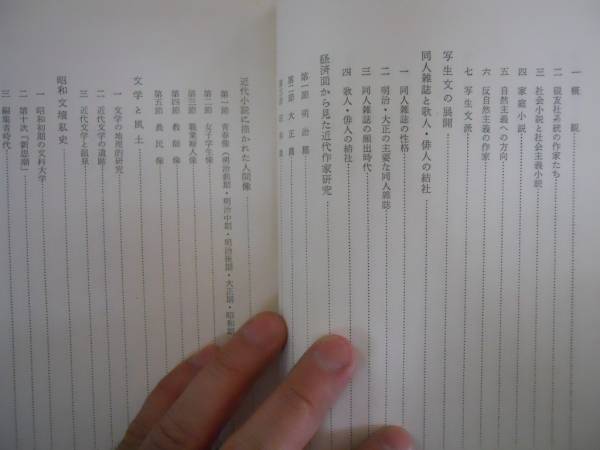 一 概説
二 硯友社系統の作家たち
三 社会小説と社会主義小説
四 家庭小説
五 自然主義への方向
六 反自然主義の作家
七 写生文派
写生文の展開
同人雑誌と歌人・俳人の結社
一 同人雑誌の性格
二 明治・大正の主要な同人雑誌
三 同人雑誌の頻出時代
四 歌人・俳人の結社
経済面から見た近代作家研究
第一節 明治期
第二節 大正期
近代小説に描かれた人間像
第一節 青春像（明治前期・明治中期・明治後期・大正期・昭和期
第二節 女子学生像
第三節 職業婦人像
第四節 教師像
第五節 農民像
文学と風土
一 文学の地理的研究
二 近代文学の遺跡
三 近代文学と温泉
昭和文壇私史
一 昭和初期の文科大学
二 第十次「新思潮」
三 編集者時代